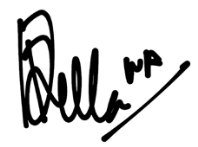 Della WP